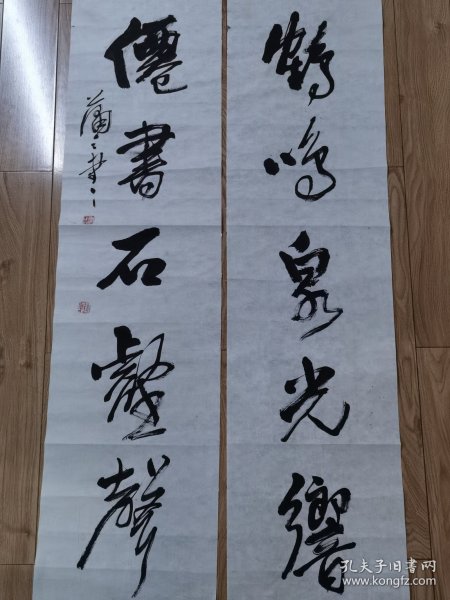 鶴鳴泉光響
僊書石壁聲
孔夫子旧书网
www.kongfz.com